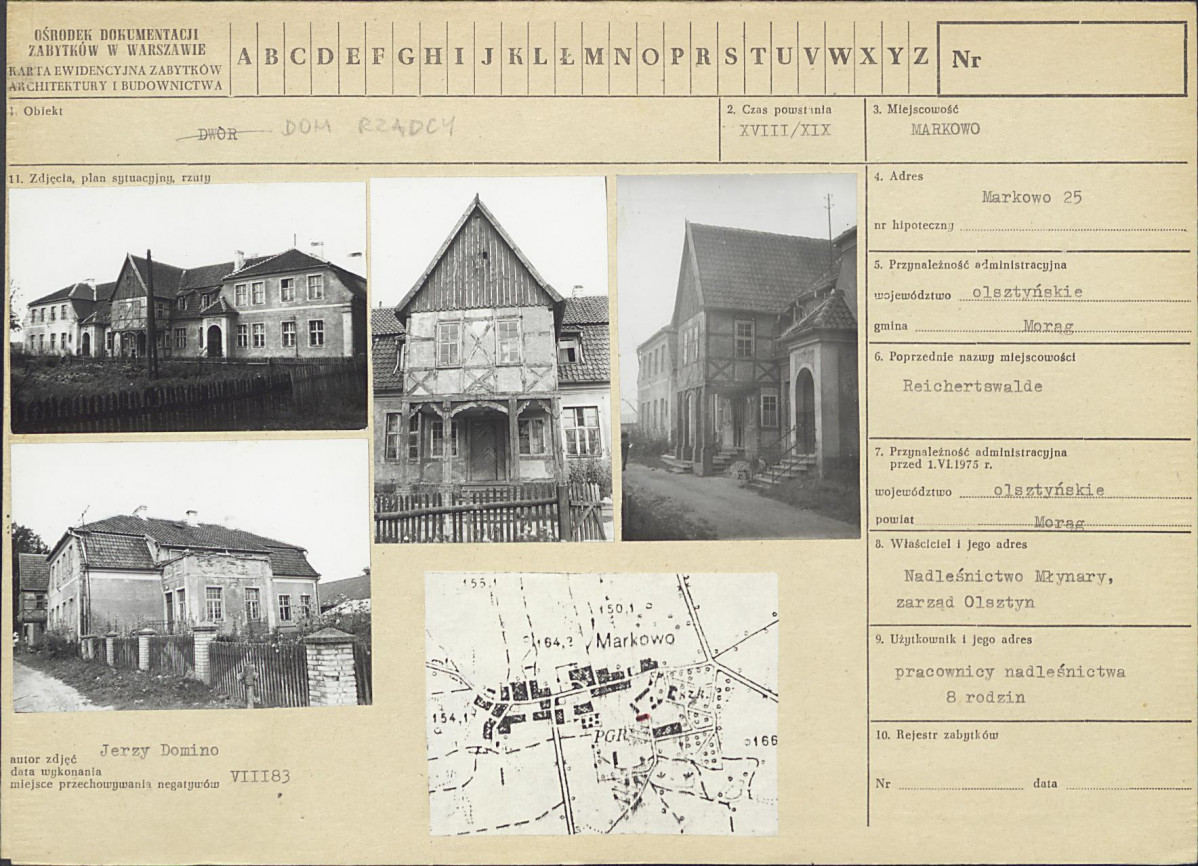 OŚRODEK DOKUMENTACJI
ZABYTKÓW W WARSZAWIE
KARTA EWIDENCYJNA ZABYTKÓW
ARCHITEKTURY I BUDOWNICTWA
A B C D E F G H I J K L Ł M N O P R S T U V W X Y Z
Nr
1. Obiekt
DWÓR DOM RZĄDCY
2. Czas powstania
XVIII/XIX
3. Miejscowość
MARKOWO
11. Zdjęcia, plan sytuacyjny, rzuty
4. Adres
Markowo 25
nr hipoteczny
5. Przynależność administracyjna
województwo olsztyńskie
gmina Morąg
6. Poprzednie nazwy miejscowości
Reichertswalde
7. Przynależność administracyjna
przed 1.VI.1975 r.
województwo olsztyńskie
powiat Morąg
8. Właściciel i jego adres
Nadleśnictwo Młynary,
zarząd Olsztyn
9. Użytkownik i jego adres
pracownicy nadleśnictwa
8 rodzin
10. Rejestr zabytków
Nr data
155,1
150,1
164,2 Markowo
154,1
PGR
166
Jerzy Domino
autor zdjęć
data wykonania
miejsce przechowywania negatywów VIII83